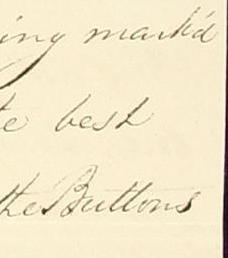 ing mark'd
te best
the Buttons